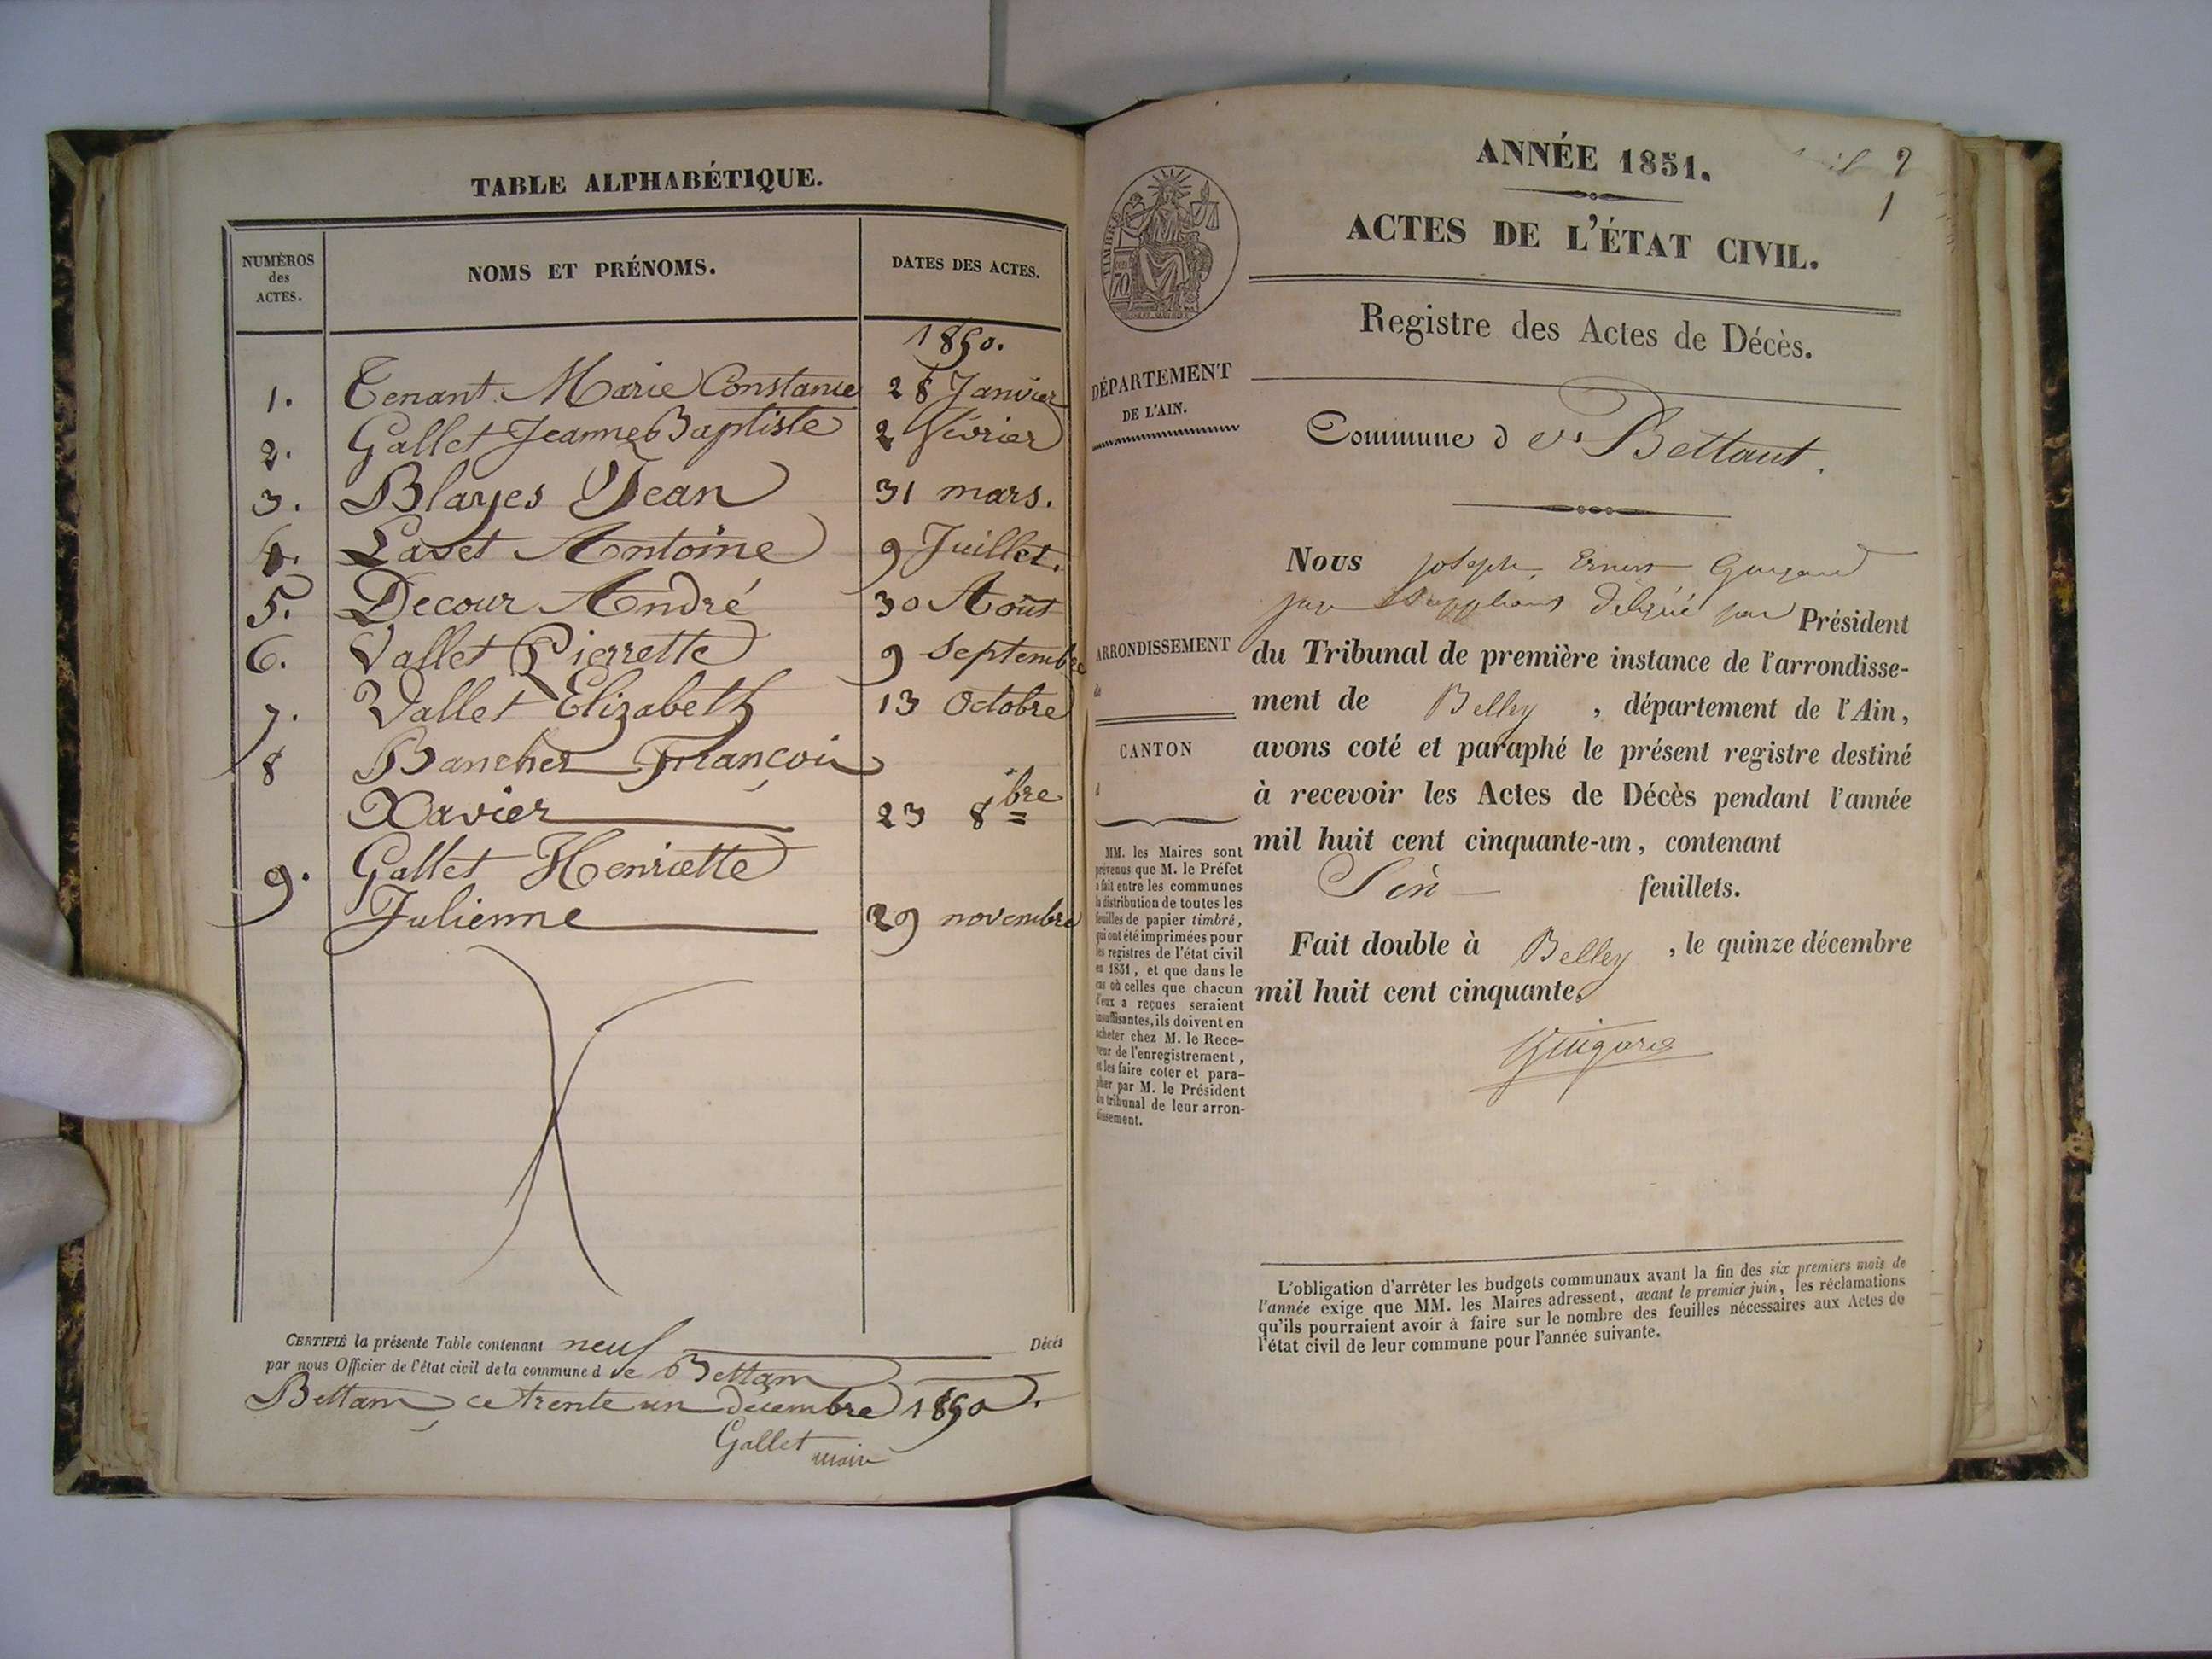 TABLE ALPHABÉTIQUE.
NUMÉROS
des
ACTES.
NOMS ET PRÉNOMS.
DATES DES ACTES.
1850.
1. Tenant Marie Constance 28 Janvier
2. Gallet Jeanne Baptiste 2 Février
3. Blayes Jean 31 mars.
4. Lavet Antoine 9 Juillet.
5. Decour André 30 Août
6. Vallet Pierrette 9 Septembre
7. Vallet Elizabeth 13 Octobre
8 Bancher François
Xavier 23 8bre
9. Gallet Henriette
Julienne 29 novembre
CERTIFIÉ la présente Table contenant neuf Décés
par nous Officier de l'état civil de la commune d de Bettam
Bettam, ce trente un décembre 1850.
Gallet maire
ANNÉE 1851.
2
1
ACTES DE L'ÉTAT CIVIL.
TIMBRE
70
Registre des Actes de Décès.
DÉPARTEMENT
DE L'AIN.
Commune de Bettant.
Nous Joseph Ernest
délégué par Président
ARRONDISSEMENT
de
CANTON
d
du Tribunal de première instance de l'arrondisse-
ment de Belley, département de l'Ain,
avons coté et paraphé le présent registre destiné
à recevoir les Actes de Décès pendant l'année
mil huit cent cinquante-un, contenant
feuillets.
Fait double à Belley, le quinze décembre
mil huit cent cinquante.
MM. les Maires sont
prévenus que M. le Préfet
a fait entre les communes
la distribution de toutes les
feuilles de papier timbré,
qui ont été imprimées pour
les registres de l'état civil
en 1851, et que dans le
cas où celles que chacun
d'eux a reçues seraient
insuffisantes, ils doivent en
acheter chez M. le Rece-
veur de l'enregistrement,
et les faire coter et para-
pher par M. le Président
du tribunal de leur arron-
dissement.
L'obligation d'arrêter les budgets communaux avant la fin des six premiers mois de
l'année exige que MM. les Maires adressent, avant le premier juin, les réclamations
qu'ils pourraient avoir à faire sur le nombre des feuilles nécessaires aux Actes de
l'état civil de leur commune pour l'année suivante.